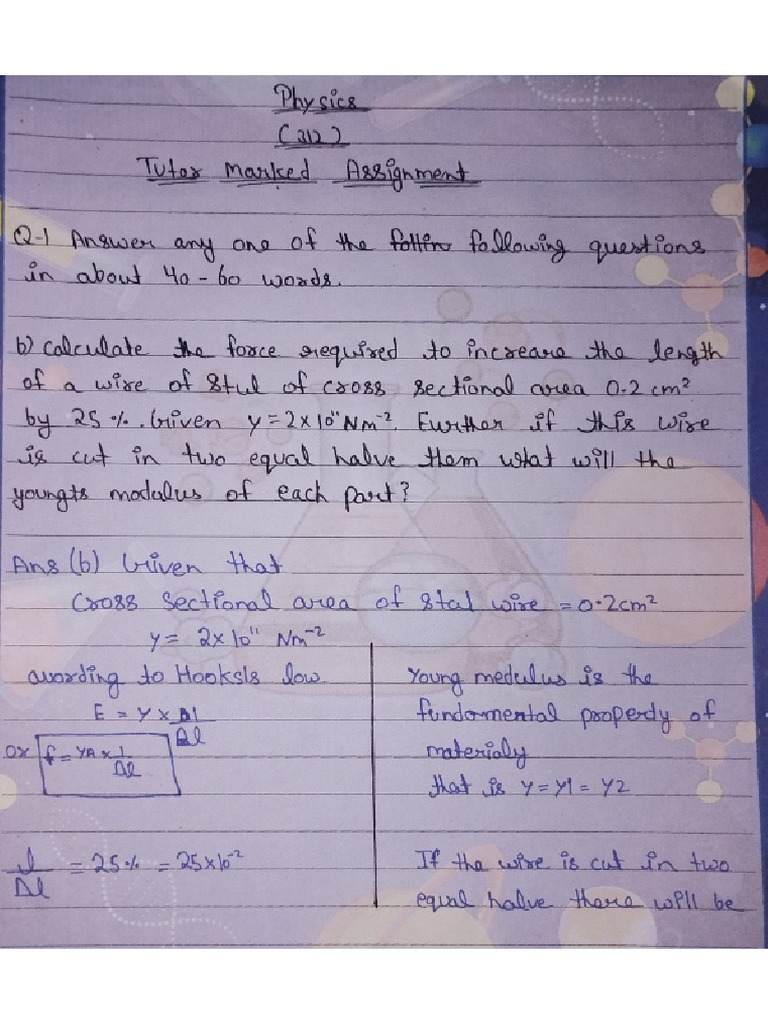 Physics
(312)
Tutor Marked Assignment
Q-1 Answer any one of the following questions
in about 40-60 words.
b) Calculate the force required to increare the length
of a wire of Stul of cross sectional area 0.2 cm²
by 25 %. Given y = 2×10¹¹ Nm⁻². Further if this wire
is cut in two equal halve them what will the
youngts modulus of each part?
Ans (b) Given that
Cross Sectional area of stal wire = 0.2cm²
y = 2×10¹¹ Nm⁻²
according to Hooksls low
E = Y × Al/Δl
or f = YA × 1/Δl
l/Δl = 25% = 25×10⁻²
Young medulus is the
fundormental property of
materialy
that is y = y1 = y2
If the wire is cut in two
equal halve there will be